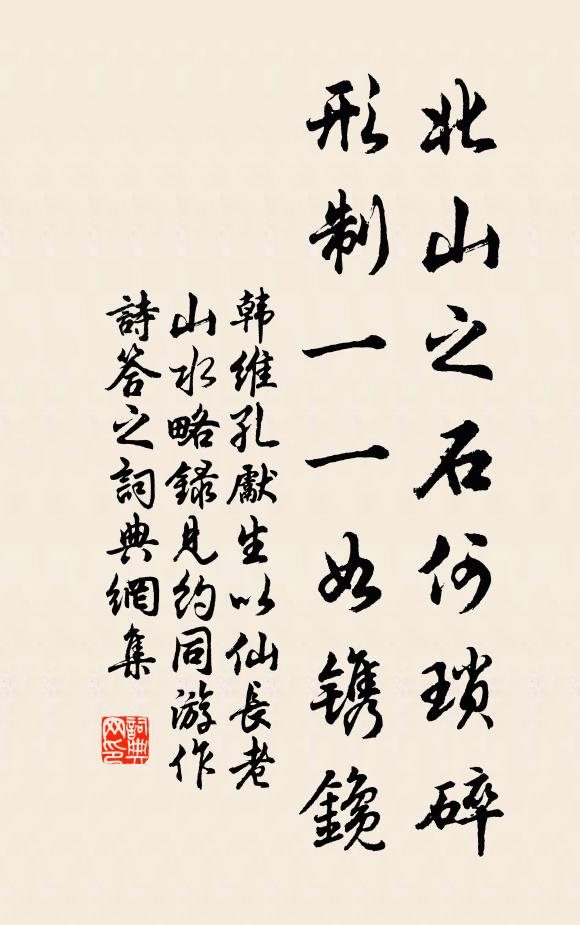 北山之石何瑣碎
形制一一如鐫鑱
韩維孔獻生以仙長老
山水略録見約同游作
詩答之詞典網集
詞典
网印